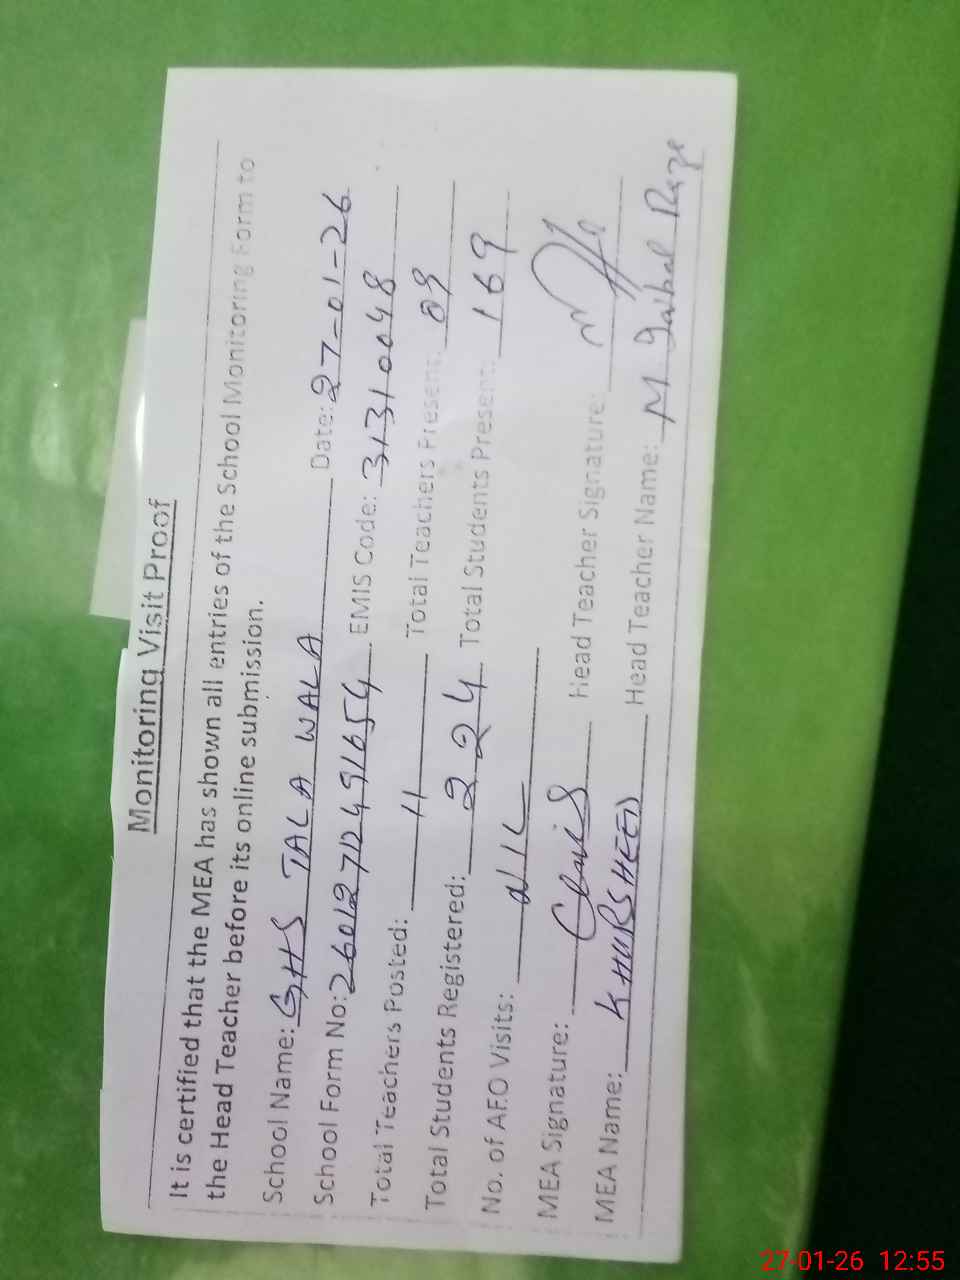 Monitoring Visit Proof
It is certified that the MEA has shown all entries of the School Monitoring Form to
the Head Teacher before its online submission.
School Name: GHS TALA WALA Date: 27-01-26
School Form No: 26012712491654 EMIS Code: 31310048
Total Teachers Posted: 11 Total Teachers Present: 09
Total Students Registered: 224 Total Students Present: 169
No. of AEO Visits: NIL
MEA Signature: Head Teacher Signature:
MEA Name: KHURSHEED Head Teacher Name: M Iqbal Raza
27-01-26 12:55